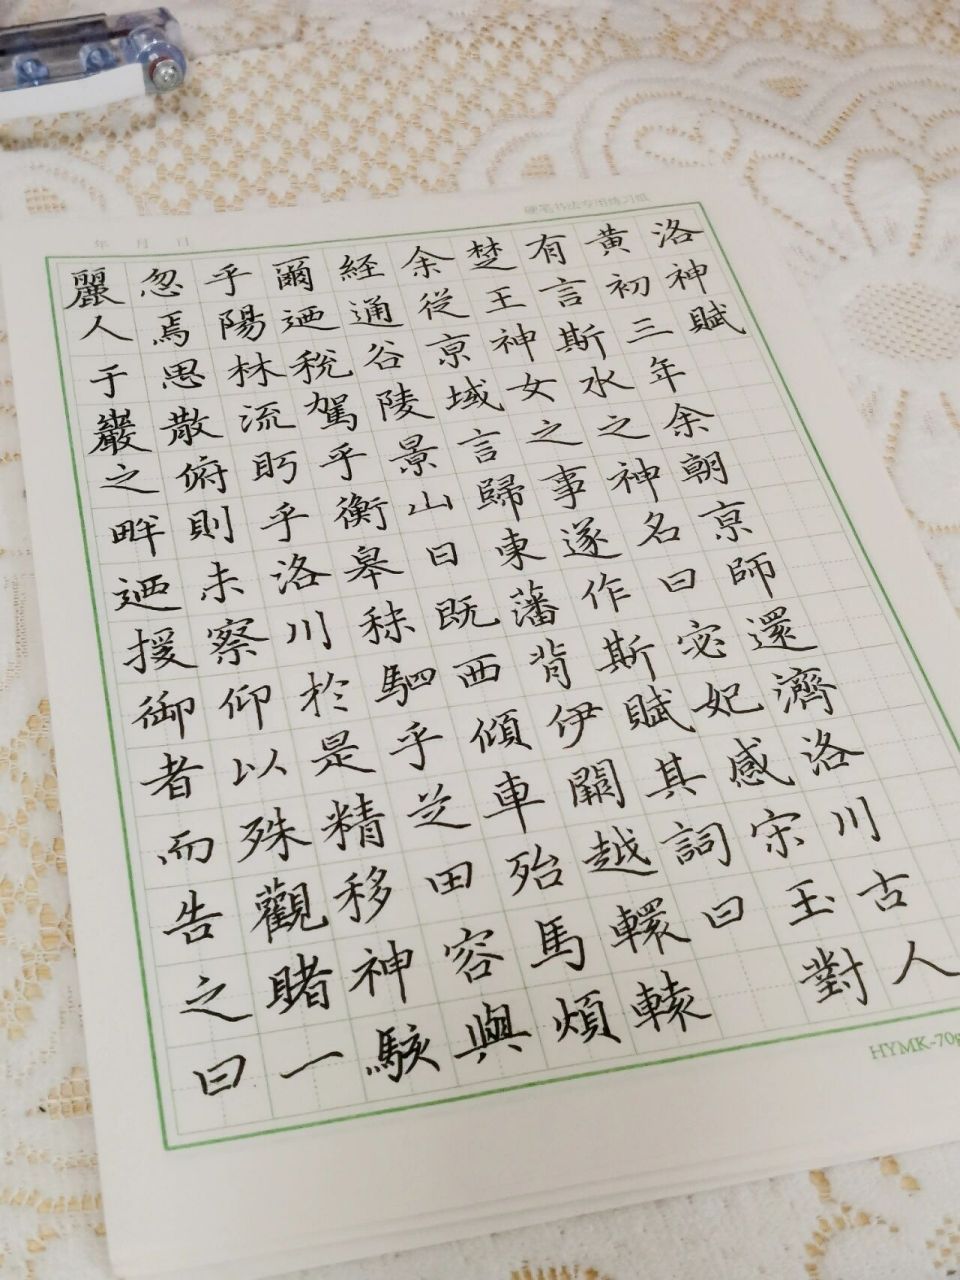 硬笔书法专用练习纸
年 月 日
洛神賦
黃初三年余朝京師還濟洛川古人
有言斯水之神名曰宓妃感宋玉對
楚王神女之事遂作斯賦其詞曰
余從京域言歸東藩背伊闕越轘轅
経通谷陵景山日既西傾車殆馬煩
爾迺稅駕乎衡皋秣駟乎芝田容與
乎陽林流眄乎洛川於是精移神駭
忽焉思散俯則未察仰以殊觀睹一
麗人于巖之畔迺援御者而告之曰
HYMK-70g